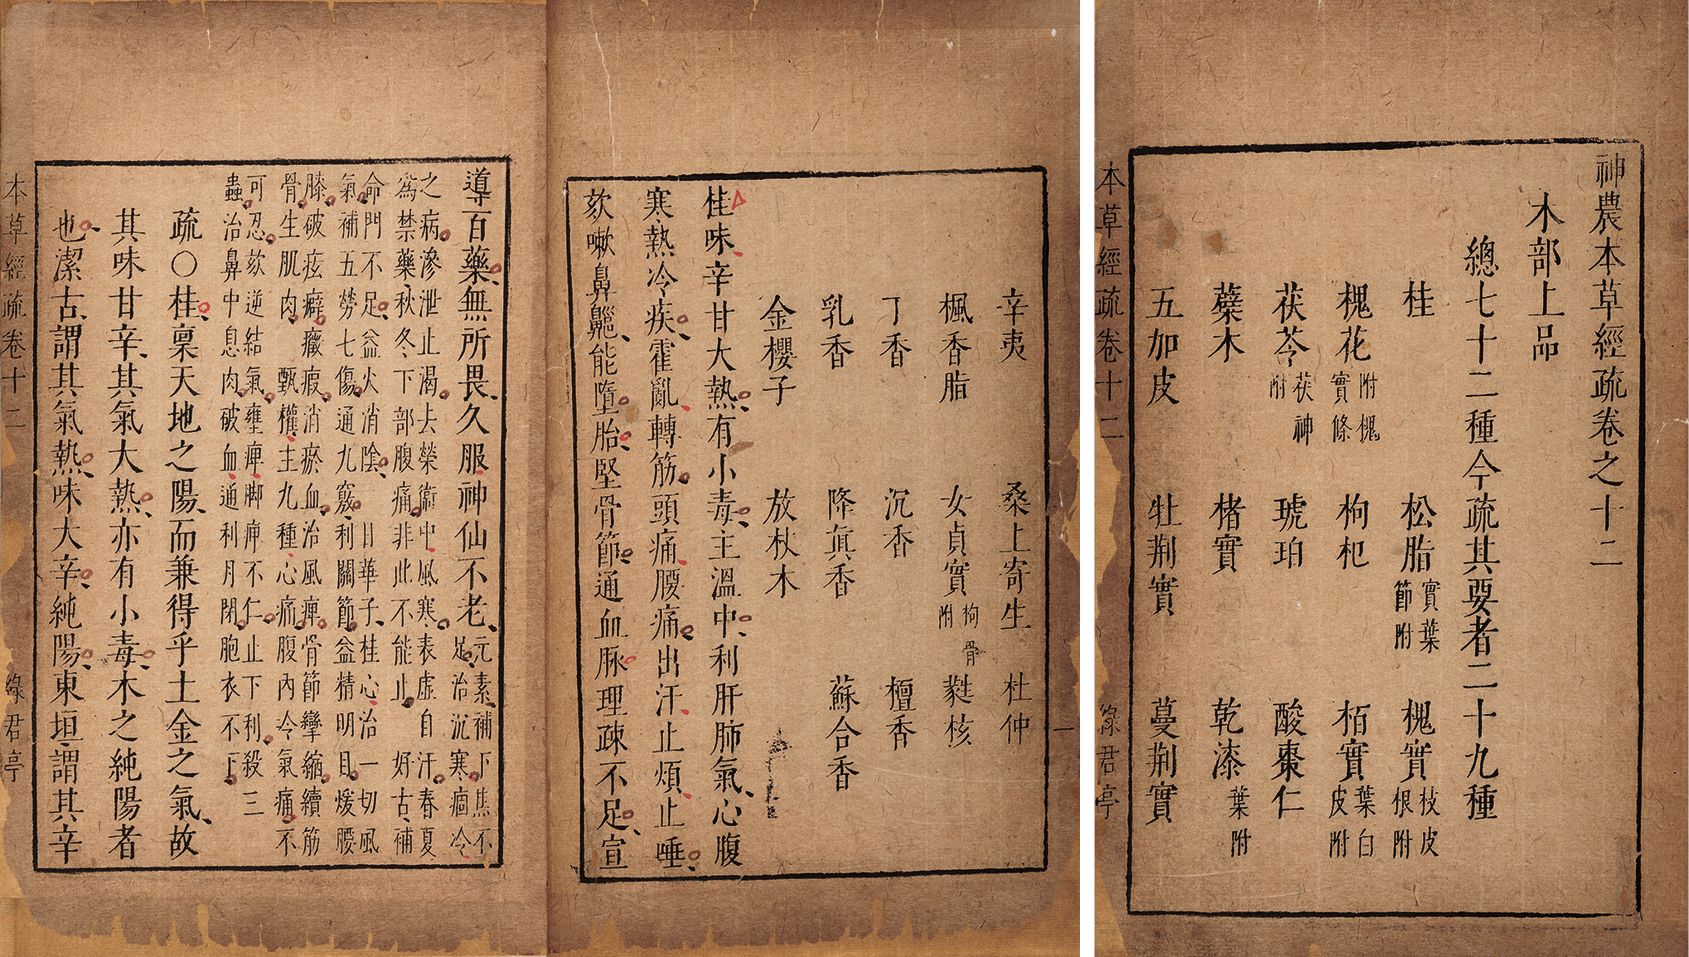 神農本草經疏卷之十二
木部上品
總七十二種今疏其要者二十九種
桂 松脂 實葉節附 槐實 枝皮根附
槐花 附槐實條 枸杞 栢實 葉白皮附
茯苓 茯神附 琥珀 酸棗仁
蘗木 楮實 乾漆 葉附
五加皮 牡荆實 蔓荆實
本草經疏卷十二 綠君亭
辛夷 桑上寄生 杜仲
楓香脂 女貞實 枸骨附 蕤核
丁香 沉香 檀香
乳香 降眞香 蘇合香
金櫻子 放杖木
桂味辛甘大熱有小毒主溫中利肝肺氣心腹
寒熱冷疾霍亂轉筋頭痛腰痛出汗止煩止唾
欬嗽鼻齆能墮胎堅骨節通血脉理疎不足宣
導百藥無所畏久服神仙不老 元素補下焦不
足治沉寒痼冷
之病滲泄止渴去榮衞中風寒表虛自汗春夏
爲禁藥秋冬下部腹痛非此不能止 好古補
命門不足益火消陰 日華子桂心治一切風
氣補五勞七傷通九竅利關節益精明目煖腰
膝破痃癖癥瘕消瘀血治風痺骨節攣縮續筋
骨生肌肉 甄權主九種心痛腹內冷氣痛不
可忍欬逆結氣壅痺脚痺不仁止下利殺三
蟲治鼻中息肉破血通利月閉胞衣不下
疏〇桂稟天地之陽而兼得乎土金之氣故
其味甘辛其氣大熱亦有小毒木之純陽者
也潔古謂其氣熱味大辛純陽東垣謂其辛
本草經疏卷十二 綠君亭